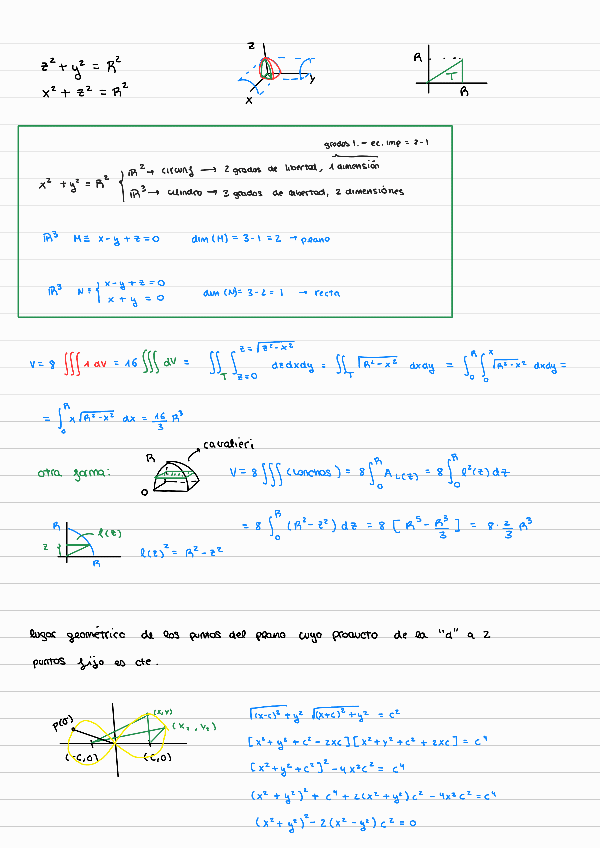 z² + y² = R²
x² + z² = R²
z
y
x
R
T
R
grados l. - ec. imp = 2-1
x² + y² = R² { R² → circunf → 2 grados de libertad, 1 dimensión
R³ → cilindro → 3 grados de libertad, 2 dimensiones
R³ M ≡ x - y + z = 0 dim (M) = 3 - 1 = 2 → plano
R³ N ≡ { x - y + z = 0
x + y = 0
dim (N) = 3 - 2 = 1 → recta
V = 8 ∭ 1 dV = 16 ∭ dV = ∬_T ∫_{z=0}^{z=√(z²-x²)} dzdxdy = ∬_T √(R²-x²) dxdy = ∫_0^R ∫_0^x √(R²-x²) dxdy =
= ∫_0^R x √(R²-x²) dx = 16/3 R³
otra forma:
R
O
cavalieri
V = 8 ∭ (Lonchas) = 8 ∫_0^R A_{L(z)} = 8 ∫_0^R l²(z) dz
= 8 ∫_0^R (R² - z²) dz = 8 [ R⁵ - R³/3 ] = 8 · 2/3 R³
R
z
l(z)
R
l(z)² = R² - z²
lugar geométrico de los puntos del plano cuyo producto de la "d" a 2
puntos fijo es cte.
P(0)
(x,y)
(x₂, y₂)
(-c,0)
(c,0)
√((x-c)² + y²) √((x+c)² + y²) = c²
[x² + y² + c² - 2xc] [x² + y² + c² + 2xc] = c⁴
[x² + y² + c²]² - 4x²c² = c⁴
(x² + y²)² + c⁴ + 2(x² + y²)c² - 4x²c² = c⁴
(x² + y²)² - 2(x² - y²)c² = 0